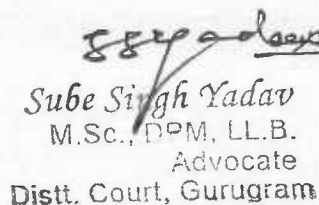 Sube Singh Yadav
M.Sc., DPM, LL.B.
Advocate
Distt. Court, Gurugram